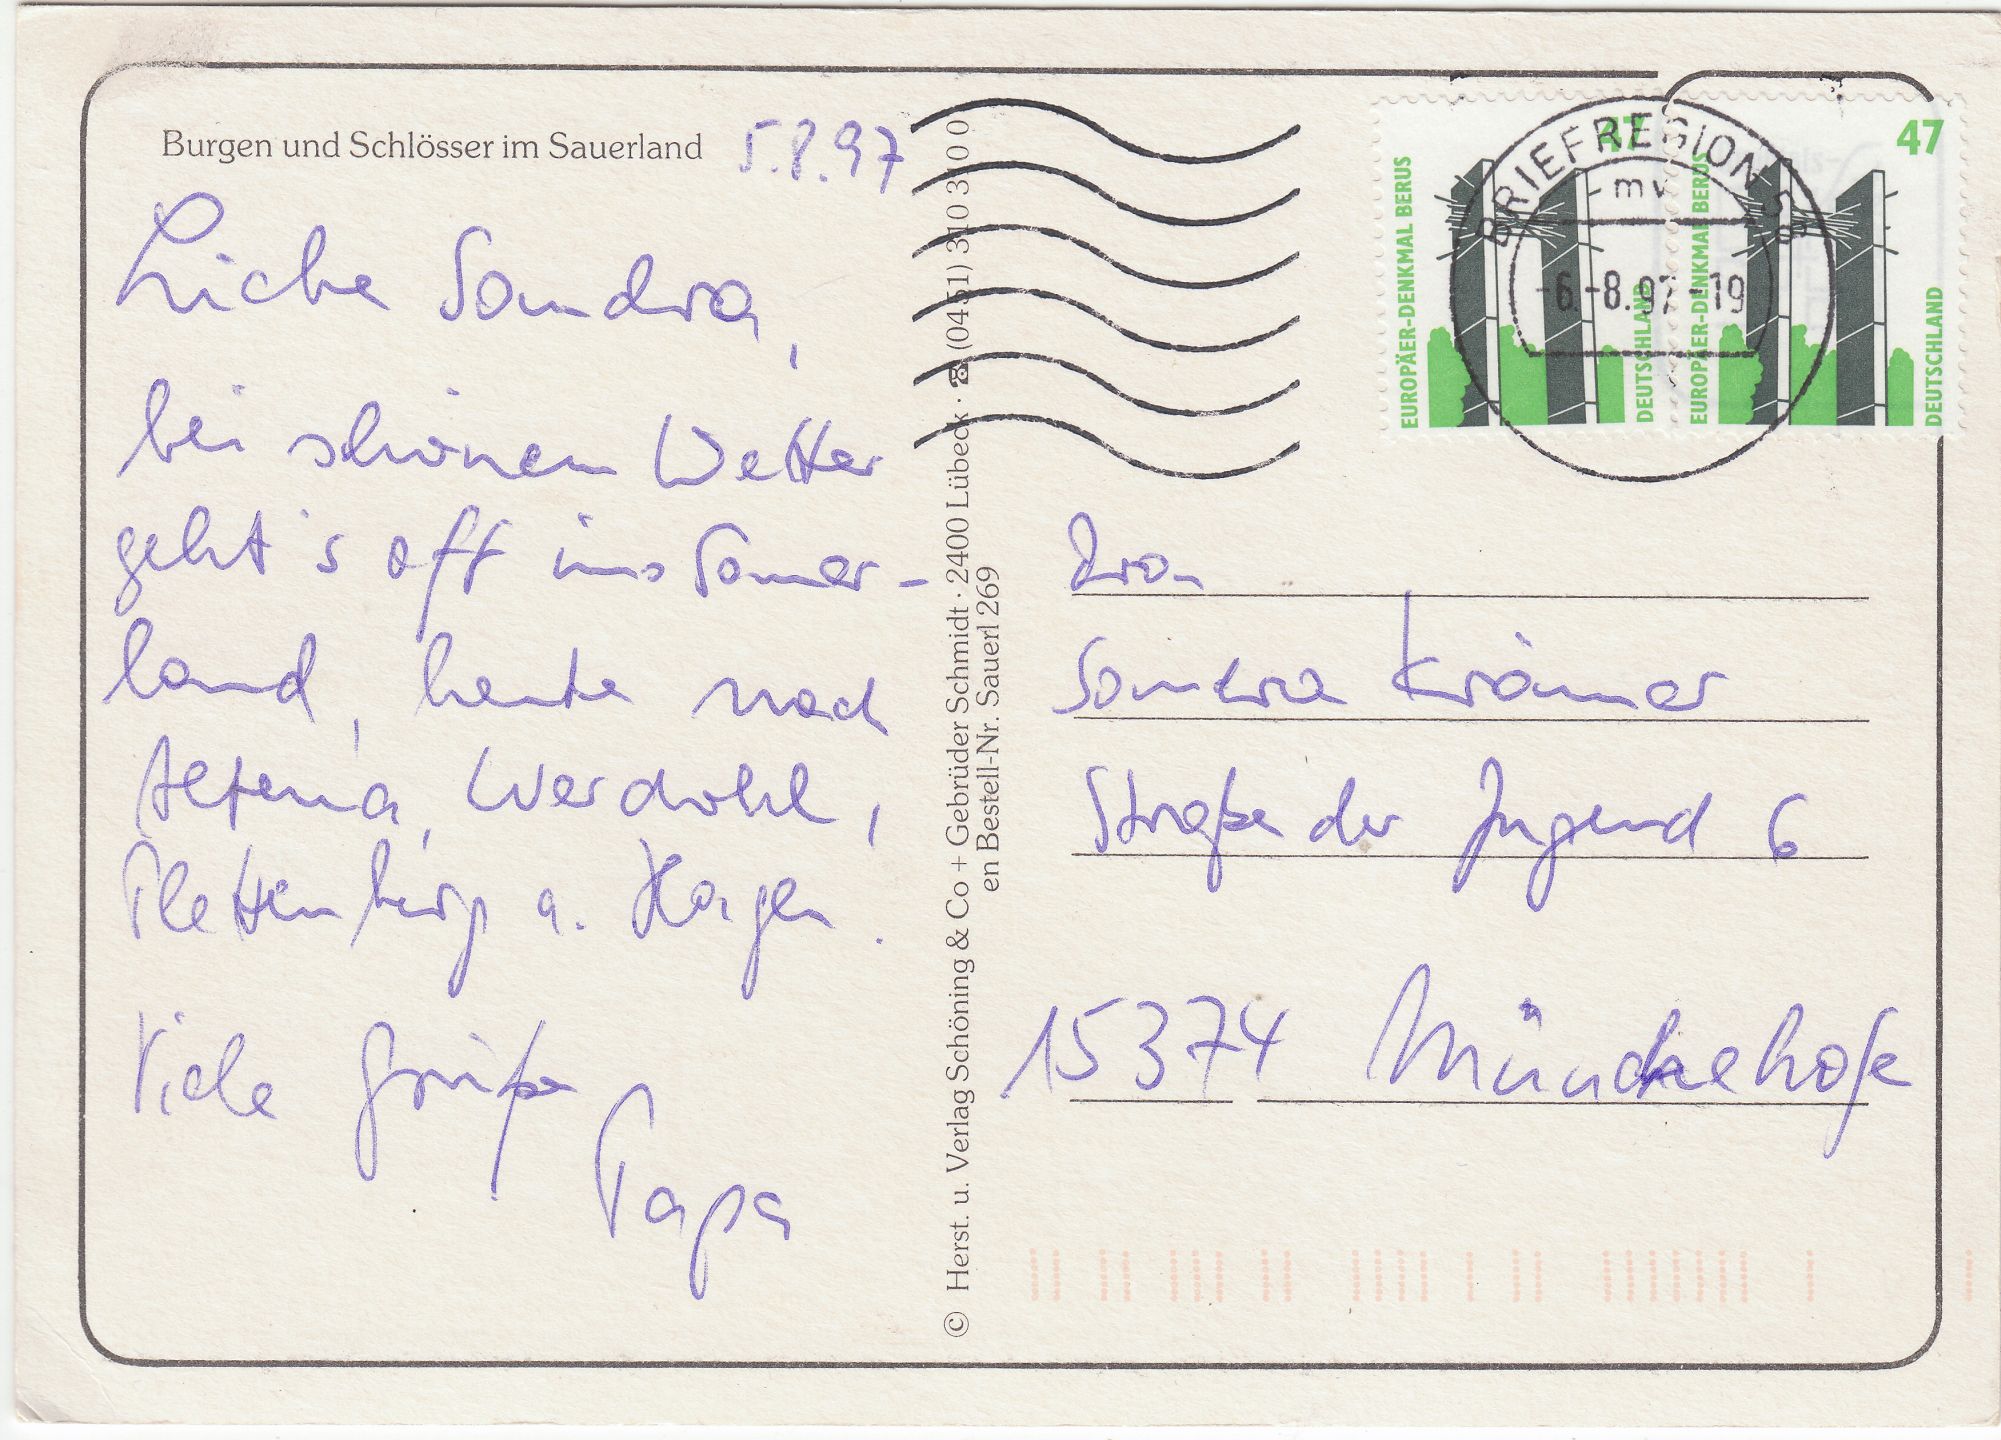 Burgen und Schlösser im Sauerland
5.8.97
Liebe Sandra,
bei schönem Wetter
geht's oft ins Sauer-
land, heute nach
Altena, Werdohl,
Plettenberg u. Hagen.
Viele Grüße
Papa
© Herst. u. Verlag Schöning & Co + Gebrüder Schmidt · 2400 Lübeck · ☎ (0451) 310 3100
en Bestell-Nr. Sauerl 269
EUROPÄER-DENKMAL BERUS
47
DEUTSCHLAND
EUROPÄER-DENKMAL BERUS
47
DEUTSCHLAND
BRIEFREGION 58
mv
-6.-8.97-19
Frau
Sandra Krämer
Straße der Jugend 6
15374 Münchehofe